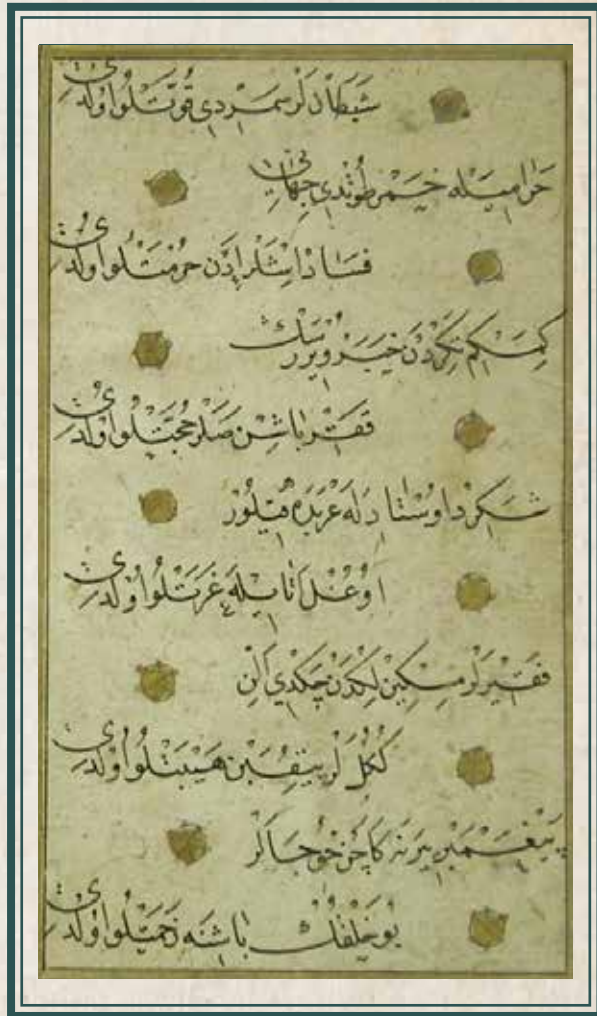 شَيَطَان لَرْ سمردي قُوَّتْلُو اولدي
حراميله خَمر طُوتدي جهاني
فساد اشلر ادن حرمتلو اولدي
كمسكم تكردن خبر ويررسك
ققر باشن صلر حجتلو اولدي
شكرد اوستادله عربده قيلور
اوغل اتايله عزتلو اولدي
فقيرلر مسكين لكدن چكدي الن
ككل لر ييقبن هيبتلو اولدي
پيغمبر يرنه كاچن خوجالر
بو خلقك باشنه زحمتلو اولدي